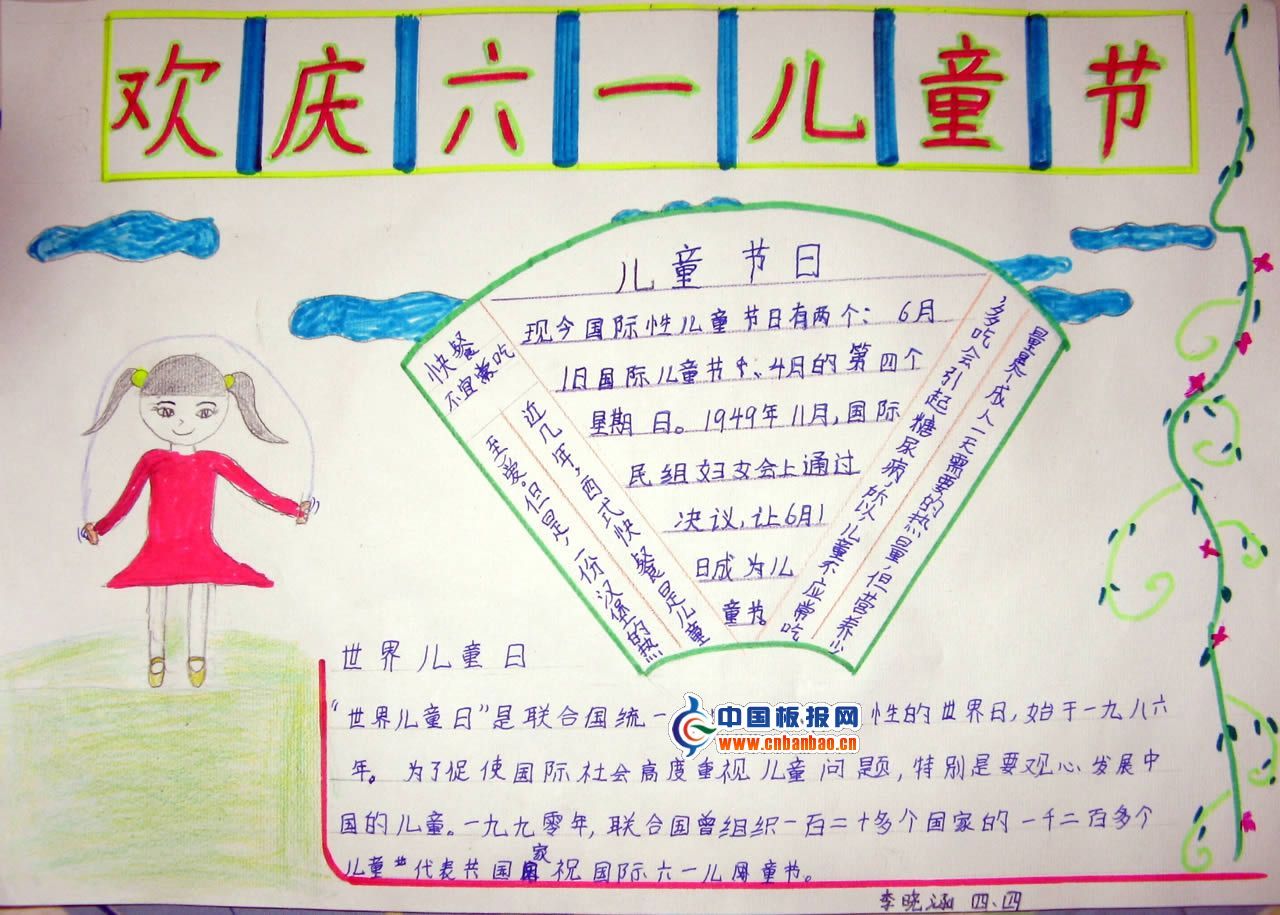 欢庆六一儿童节
儿童节日
现今国际性儿童节日有两个：6月
1日国际儿童节、4月的第四个
星期日。1949年11月，国际
民组妇女会上通过
决议，让6月1
日成为儿
童节。
快餐
不宜常吃
近几年，西式快餐是儿童
至爱。但是，一份汉堡的热
量界成人一天需要的热量，但营养少
多吃会引起糖尿病，所以儿童不应常吃
世界儿童日
“世界儿童日”是联合国统一
性的世界日，始于一九八六
年。为了促使国际社会高度重视儿童问题，特别是要观心发展中
国的儿童。一九九零年，联合国曾组织一百二十多个国家的一千二百多个
儿童代表共国家祝国际六一儿童节。
中国板报网
www.cnbanbao.cn
李晓涵 四、四